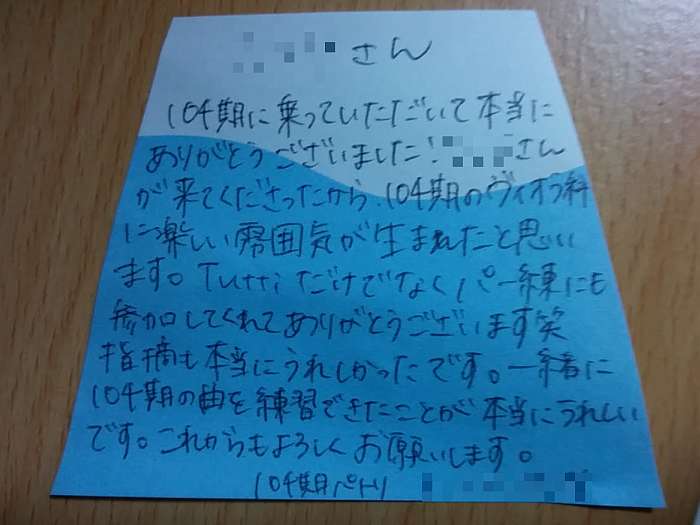 さん
104期に乗っていただいて本当に
ありがとうございました！さん
が来てくださったから、104期のヴィオラ科
に楽しい雰囲気が生まれたと思い
ます。Tuttiだけでなくパー練にも
参加してくれてありがとうございます笑
指摘も本当にうれしかったです。一緒に
104期の曲を練習できたことが本当にうれしい
です。これからもよろしくお願いします。
104期パトリ